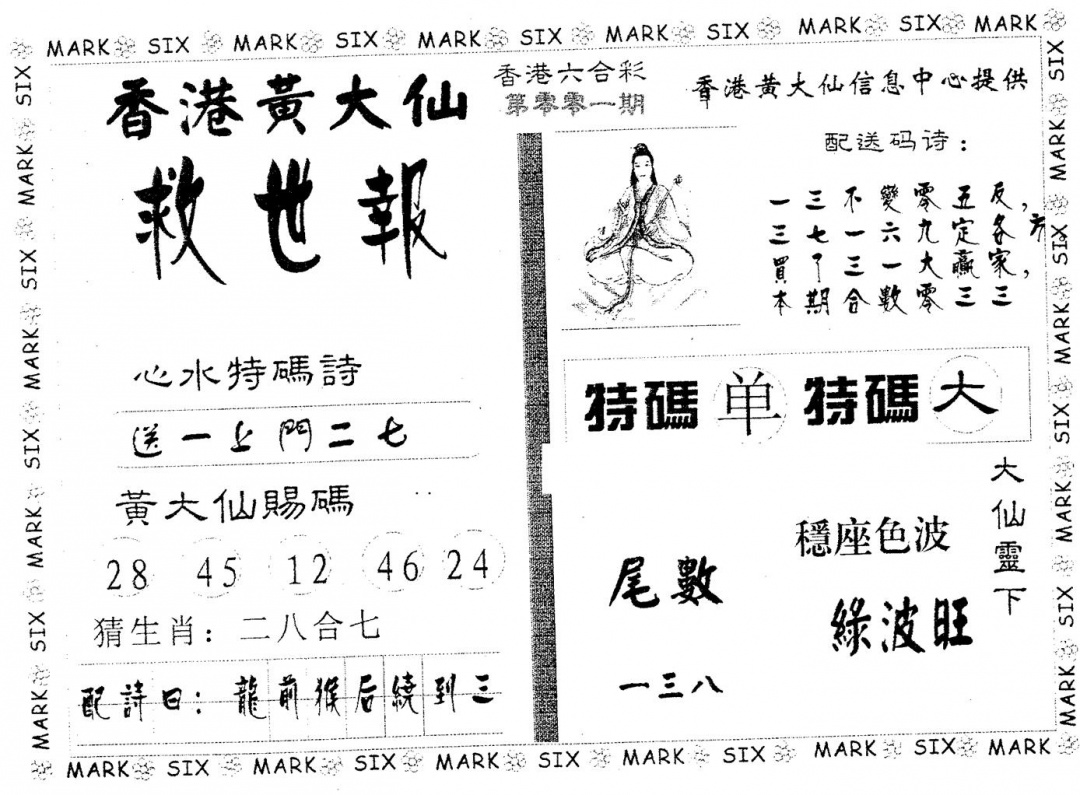 MARK SIX MARK SIX MARK SIX MARK SIX MARK SIX MARK
香港黃大仙
救世報
香港六合彩
第零零一期
香港黄大仙信息中心提供
配送码诗：
一三不變零五反，
三七一六九定各方
買了三一大贏家，
本期合數零三三
心水特碼詩
送一上門二七
特碼 单 特碼 大
黃大仙賜碼
28 45 12 46 24
猜生肖：二八合七
配詩曰：龍前猴后繞到三
尾數
一三八
穩座色波
綠波旺
大仙靈下
MARK SIX MARK SIX MARK SIX MARK SIX MARK SIX MARK
MARK SIX MARK SIX MARK SIX MARK SIX
MARK SIX MARK SIX MARK SIX MARK SIX